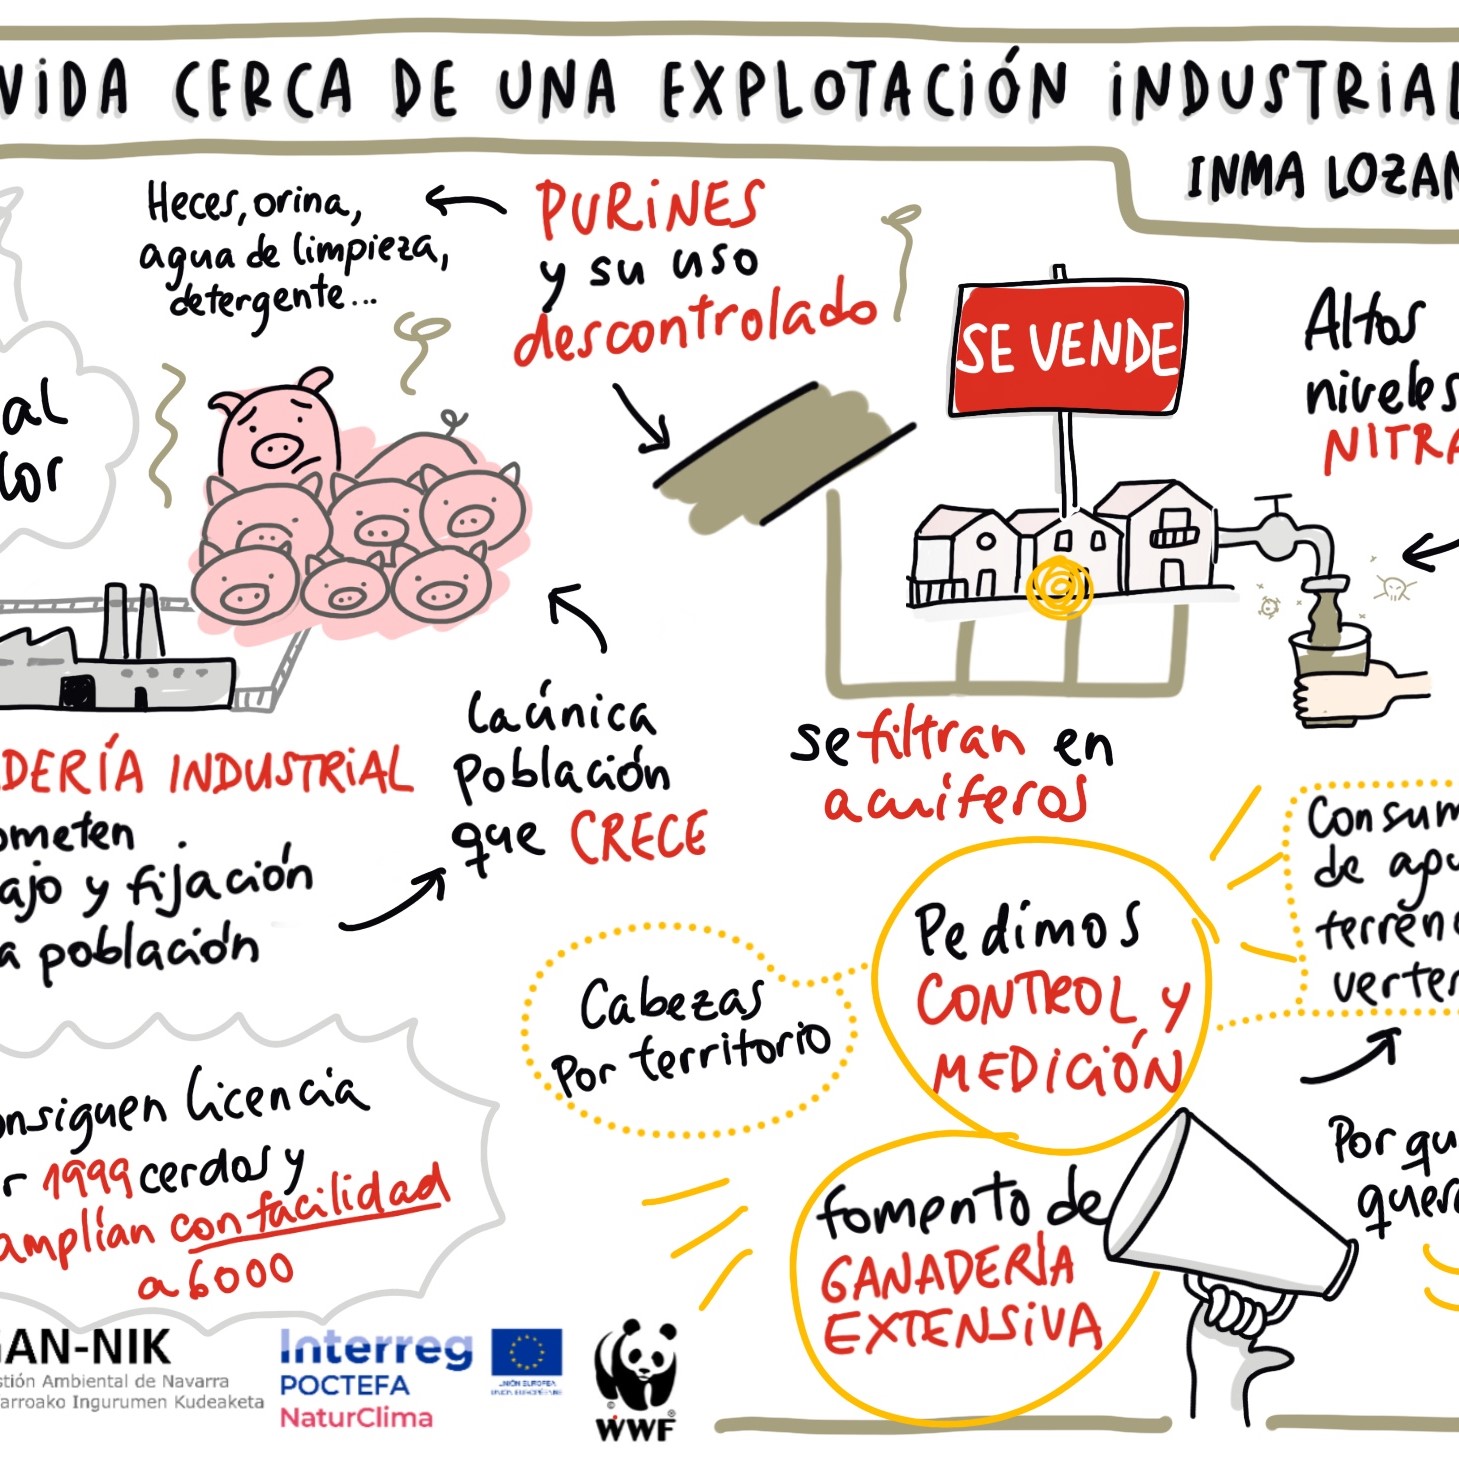 VIDA CERCA DE UNA EXPLOTACIÓN INDUSTRIAL
INMA LOZAN
Heces, orina,
agua de limpieza,
detergente...
PURINES
y su uso
descontrolado
SE VENDE
Altos
niveles
NITRA
al
lor
DERÍA INDUSTRIAL
ometen
ajo y fijación
a población
La única
población
que CRECE
se filtran en
acuíferos
Pedimos
CONTROL y
MEDICIÓN
Cabezas
Por territorio
Consum
de agu
terreno
verter
onsiguen licencia
r 1999 cerdos y
amplían con facilidad
a 6000
fomento de
GANADERÍA
EXTENSIVA
Por qu
quere
GAN-NIK
stión Ambiental de Navarra
arroako Ingurumen Kudeaketa
Interreg
POCTEFA
NaturClima
UNIÓN EUROPEA
UNION EUROPÉENNE
WWF